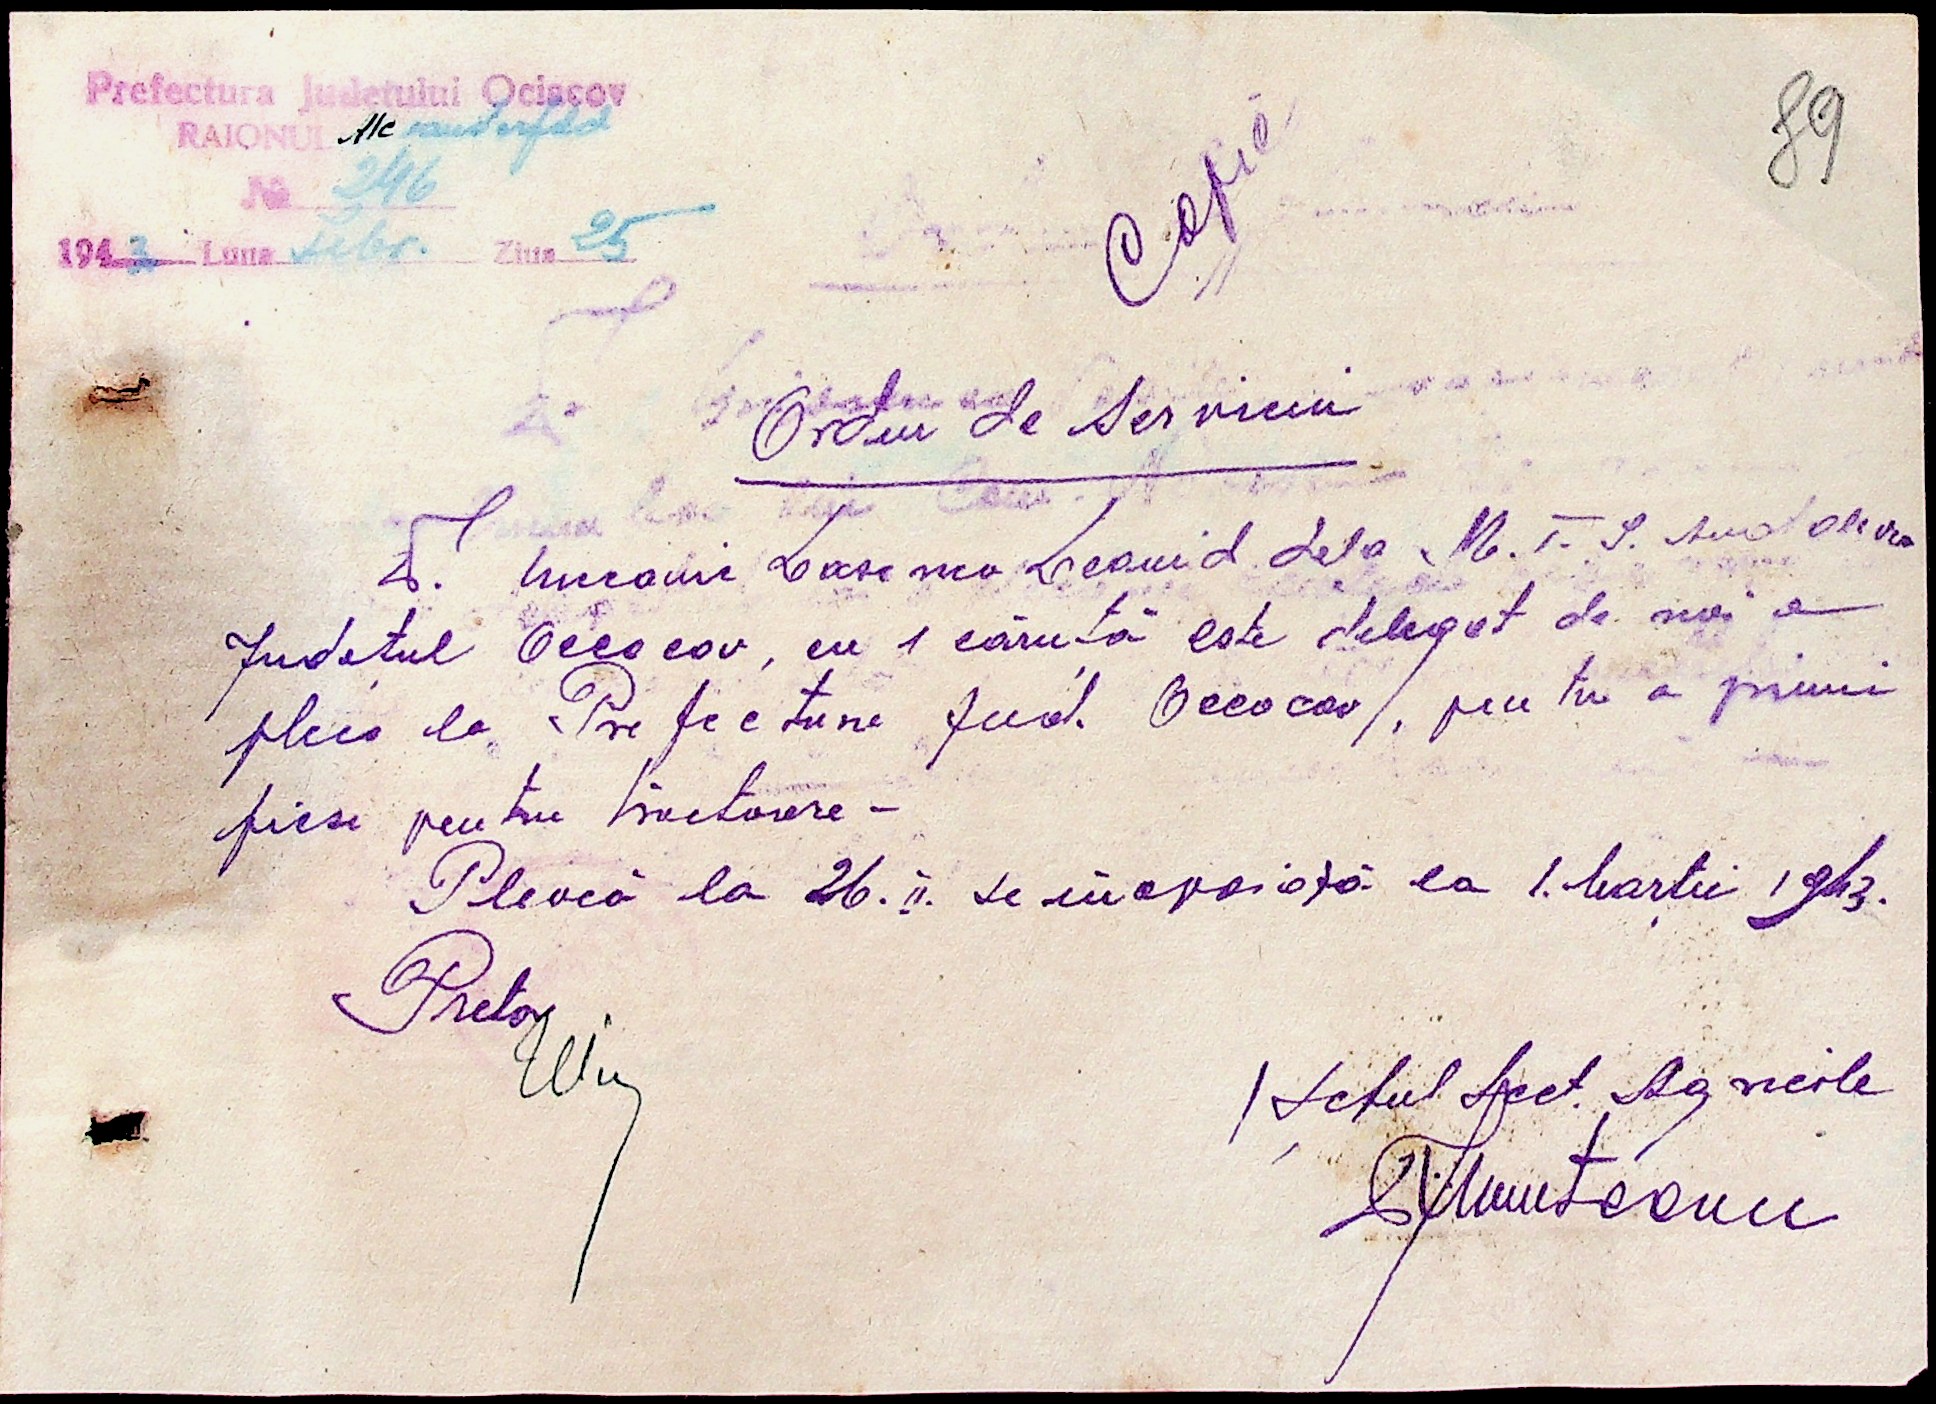 Prefectura Județului Ociacov
RAIONUL Alexanderfeld
№ 246
1943 Luna Febr. Ziua 25
89
Copie
Ordin de Serviciu
D. Leonid dela M. T. S.
Județul Oceacov, cu 1 căruță este delegat de noi a
pleca la Prefectura Jud. Oceacov, pentru a primi
piese pentru tractoare -
Pleacă la 26.II. se inapoiază la 1. Martie 1943.
Pretor
/ Șeful Sect. Agricole
Munteanu